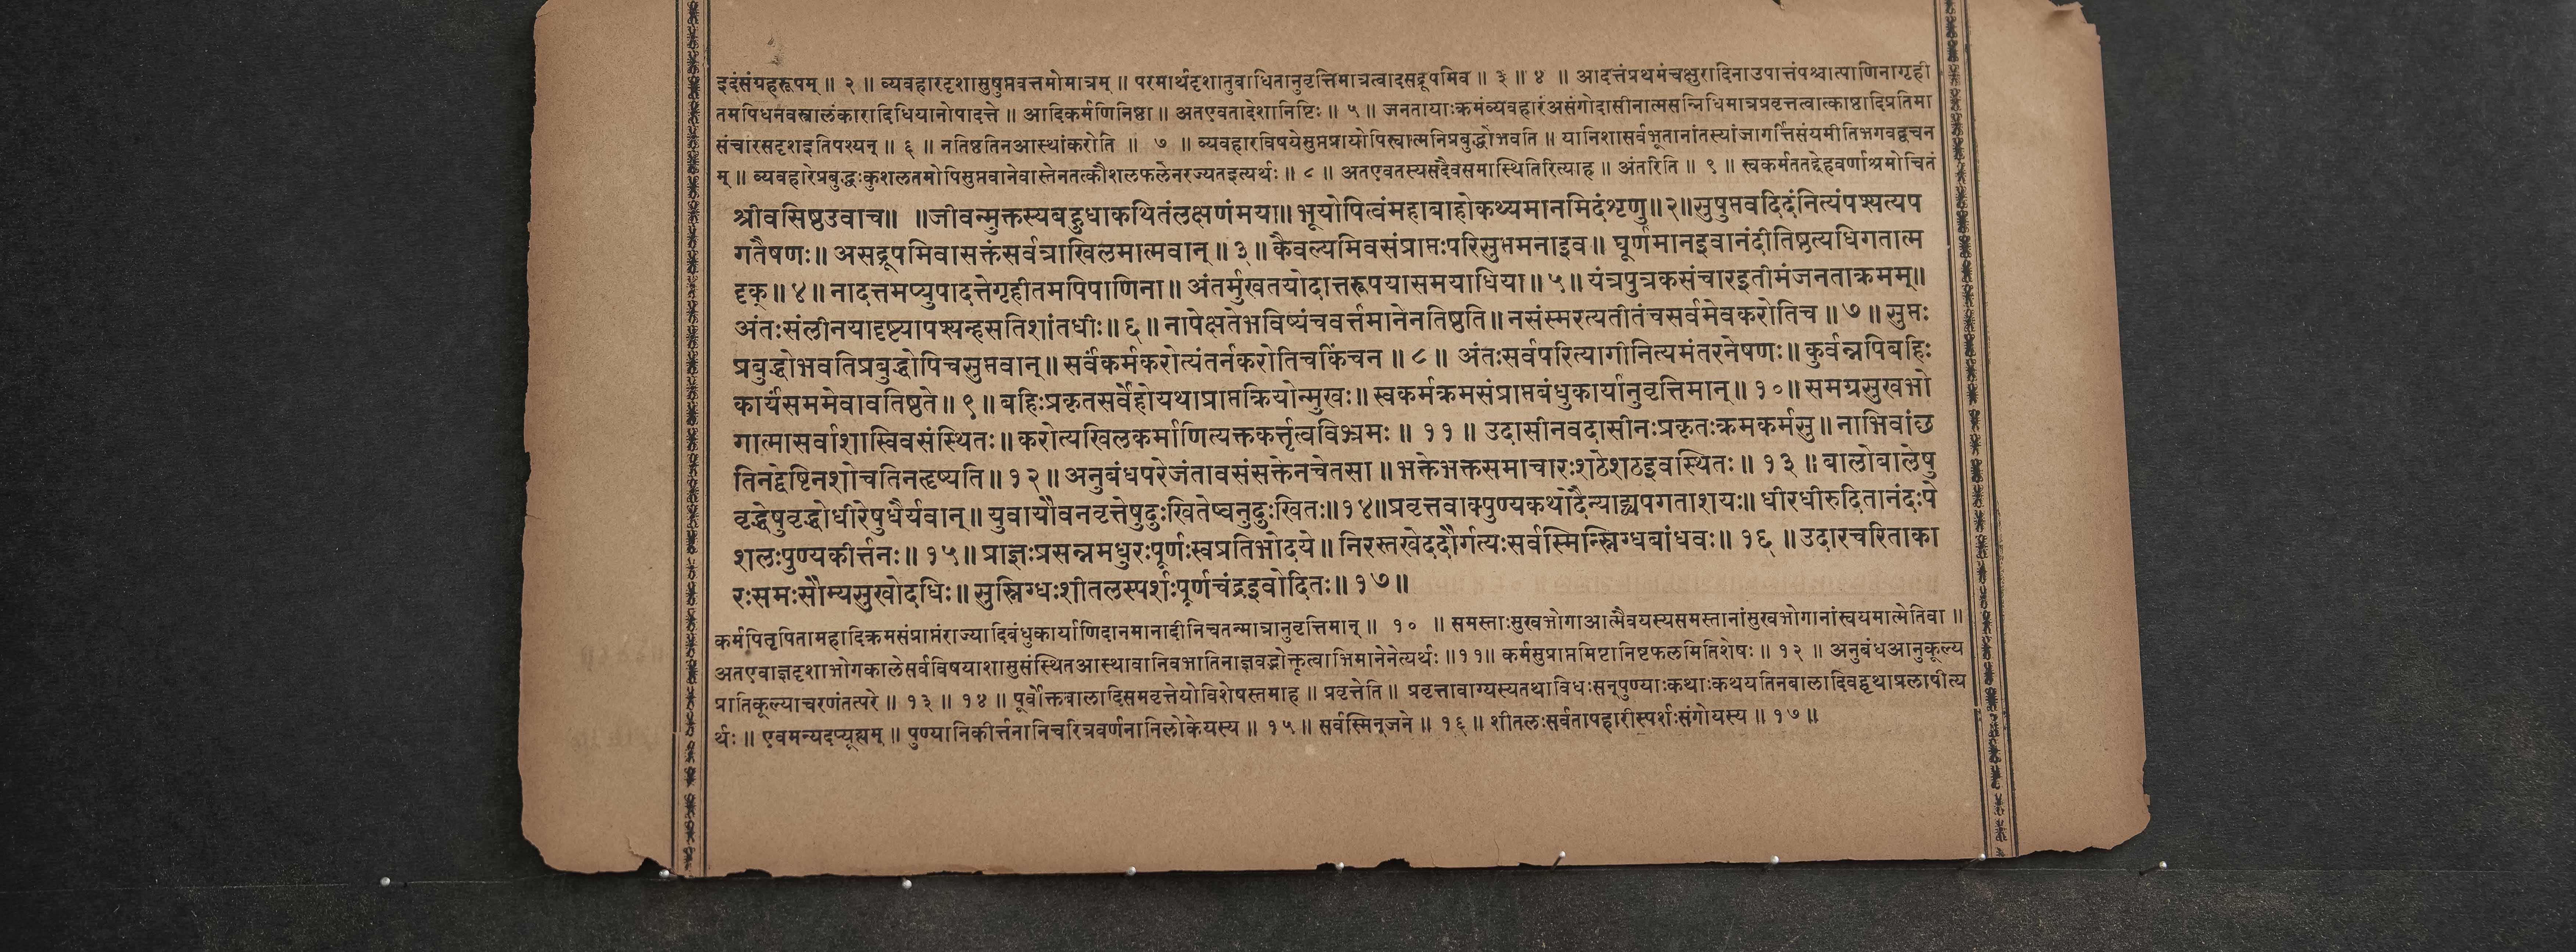 इदंसंग्रहरूपम् ॥ २ ॥ व्यवहारदृशासुषुप्तवत्तमोमात्रम् ॥ परमार्थदृशातुबाधितानुवृत्तिमात्रत्वादसद्रूपमिव ॥ ३ ॥ ४ ॥ आदत्तंप्रथमंचक्षुरादिनाउपात्तंपश्चात्पाणिनागृही
तमपिधनवस्त्रालंकारादिधियानोपादत्ते ॥ आदिकर्मणिनिष्ठा ॥ अतएवतादेशानिष्टिः ॥ ५ ॥ जनतायाःक्रमंव्यवहारंअसंगोदासीनात्मसन्निधिमात्रप्रवृत्तत्वात्काष्ठादिप्रतिमा
संचारसदृशइतिपश्यन् ॥ ६ ॥ नतिष्ठतिनआस्थांकरोति ॥ ७ ॥ व्यवहारविषयेसुप्तप्रायोपिस्वात्मनिप्रबुद्धोभवति ॥ यानिशासर्वभूतानांतस्यांजागर्त्तिसंयमीतिभगवद्वचन
म् ॥ व्यवहारेप्रबुद्धःकुशलतमोपिसुप्तवानेवास्तेनतत्कौशलफलेनरज्यतइत्यर्थः ॥ ८ ॥ अतएवतस्यसदैवसमास्थितिरित्याह ॥ अंतरिति ॥ ९ ॥ स्वकर्मततद्देहवर्णाश्रमोचितं
श्रीवसिष्ठउवाच॥ ॥जीवन्मुक्तस्यबहुधाकथितंलक्षणंमया॥ भूयोपित्वंमहाबाहोकथ्यमानमिदंशृणु॥२॥सुषुप्तवदिदंनित्यंपश्यत्यप
गतैषणः॥ असद्रूपमिवासक्तंसर्वत्राखिलमात्मवान् ॥ ३॥ कैवल्यमिवसंप्राप्तःपरिसुप्तमनाइव॥ घूर्णमानइवानंदीतिष्ठत्यधिगतात्म
दृक् ॥ ४॥ नादत्तमप्युपादत्तेगृहीतमपिपाणिना॥ अंतर्मुखतयोदात्तरूपयासमयाधिया॥ ५॥ यंत्रपुत्रकसंचारइतीमंजनताक्रमम्॥
अंतःसंलीनयादृष्ट्यापश्यन्हसतिशांतधीः॥ ६॥ नापेक्षतेभविष्यंचवर्त्तमानेनतिष्ठति॥ नसंस्मरत्यतीतंचसर्वमेवकरोतिच ॥ ७ ॥ सुप्तः
प्रबुद्धोभवतिप्रबुद्धोपिचसुप्तवान्॥ सर्वंकर्मकरोत्यंतर्नकरोतिचकिंचन ॥ ८॥ अंतःसर्वपरित्यागीनित्यमंतरनेषणः॥ कुर्वन्नपिबहिः
कार्यंसममेवावतिष्ठते॥ ९॥ बहिःप्रकृतसर्वेहोयथाप्राप्तक्रियोन्मुखः॥ स्वकर्मक्रमसंप्राप्तबंधुकार्यानुवृत्तिमान्॥ १०॥ समग्रसुखभो
गात्मासर्वाशास्विवसंस्थितः॥ करोत्यखिलकर्माणित्यक्तकर्त्तृत्वविभ्रमः ॥ ११ ॥ उदासीनवदासीनःप्रकृतःक्रमकर्मसु॥ नाभिवांछ
तिनद्वेष्टिनशोचतिनतृष्यति॥ १२॥ अनुबंधपरेजंतावसंसक्तेनचेतसा ॥ भक्तेभक्तसमाचारःशठेशठइवस्थितः॥ १३ ॥ बालोबालेषु
वृद्धेषुवृद्धोधीरेषुधैर्यवान्॥ युवायौवनवृत्तेषुदुःखितेष्वनुदुःखितः॥१४॥प्रवृत्तवाक्पुण्यकथोदैन्याद्व्यपगताशयः॥ धीरधीरुदितानंदःपे
शलःपुण्यकीर्त्तनः॥ १५॥ प्राज्ञःप्रसन्नमधुरःपूर्णःस्वप्रतिभोदये॥ निरस्तखेददौर्गत्यःसर्वस्मिन्स्निग्धबांधवः॥ १६ ॥ उदारचरिताका
रःसमःसौम्यसुखोदधिः॥ सुस्निग्धःशीतलस्पर्शःपूर्णचंद्रइवोदितः॥ १७॥
कर्मपितृपितामहादिक्रमसंप्राप्तंराज्यादिबंधुकार्याणिदानमानादीनिचतन्मात्रानुवृत्तिमान् ॥ १० ॥ समस्ताःसुखभोगाआत्मैवयस्यसमस्तानांसुखभोगानांस्वयमात्मेतिवा ॥
अतएवाज्ञदृशाभोगकालेसर्वविषयाशासुसंस्थितआस्थावानिवभातिनाज्ञवद्भोक्तृत्वाभिमानेनेत्यर्थः ॥११॥ कर्मसुप्राप्तमिष्टानिष्टफलमितिशेषः ॥ १२ ॥ अनुबंधआनुकूल्य
प्रातिकूल्याचरणंतत्परे ॥ १३ ॥ १४ ॥ पूर्वोक्तबालादिसमवृत्तेयोविशेषस्तमाह ॥ प्रवृत्तेति ॥ प्रवृत्तावाग्यस्यतथाविधःसन्पुण्याःकथाःकथयतिनबालादिवद्वृथाप्रलापीत्य
र्थः ॥ एवमन्यदप्यूह्यम् ॥ पुण्यानिकीर्त्तनानिचरित्रवर्णनानिलोकेयस्य ॥ १५ ॥ सर्वस्मिन्जने ॥ १६ ॥ शीतलःसर्वतापहारीस्पर्शःसंगोयस्य ॥ १७ ॥